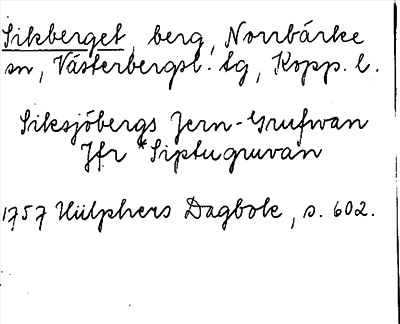 Sikberget, berg, Norrbärke
sn, Västerbergsl. tg, Kopp. l.
Siksjöbergs Jern-Grufwan
Jfr *Siptugruvan
1757 Hülphers Dagbok, s. 602.